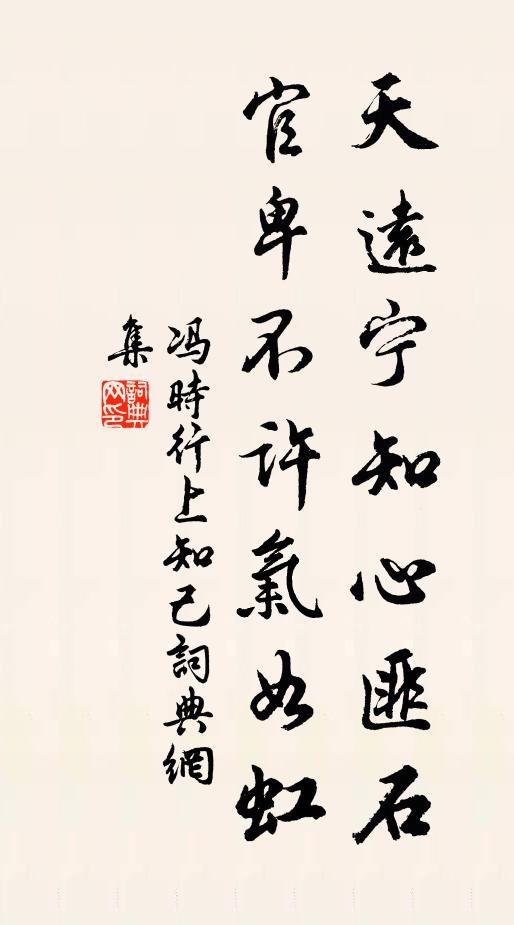 天遠宁知心匪石
官卑不许氣如虹
冯時行上知己詞典網
集
詞典
网印